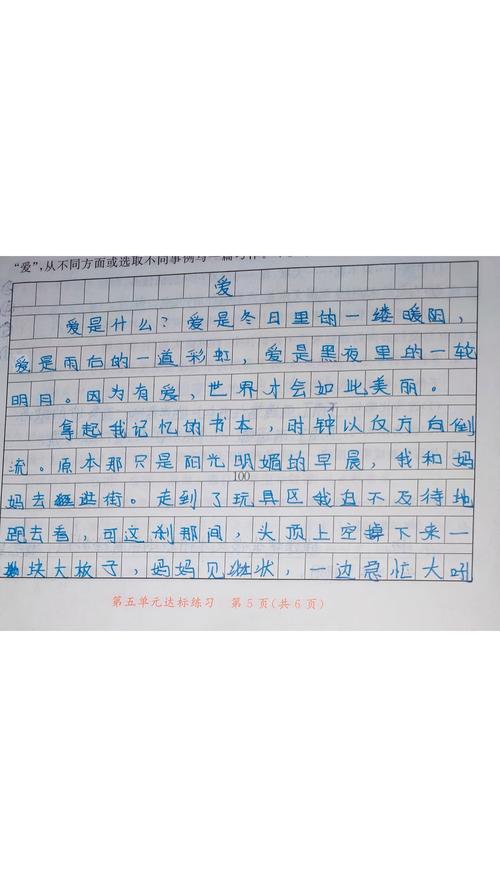 “爱”，从不同方面或选取不同事例写一篇习作。
爱
爱是什么？爱是冬日里的一缕暖阳，
爱是雨后的一道彩虹，爱是黑夜里的一轮
明月。因为有爱，世界才会如此美丽。
拿起我记忆的书本，时钟以反方向倒
流。原本那只是阳光明媚的早晨，我和妈
100
妈去逛街。走到了玩具区我迫不及待地
跑去看，可这刹那间，头顶上空掉下来一
块大板子，妈妈见状，一边急忙大吼
第五单元达标练习 第5页(共6页)